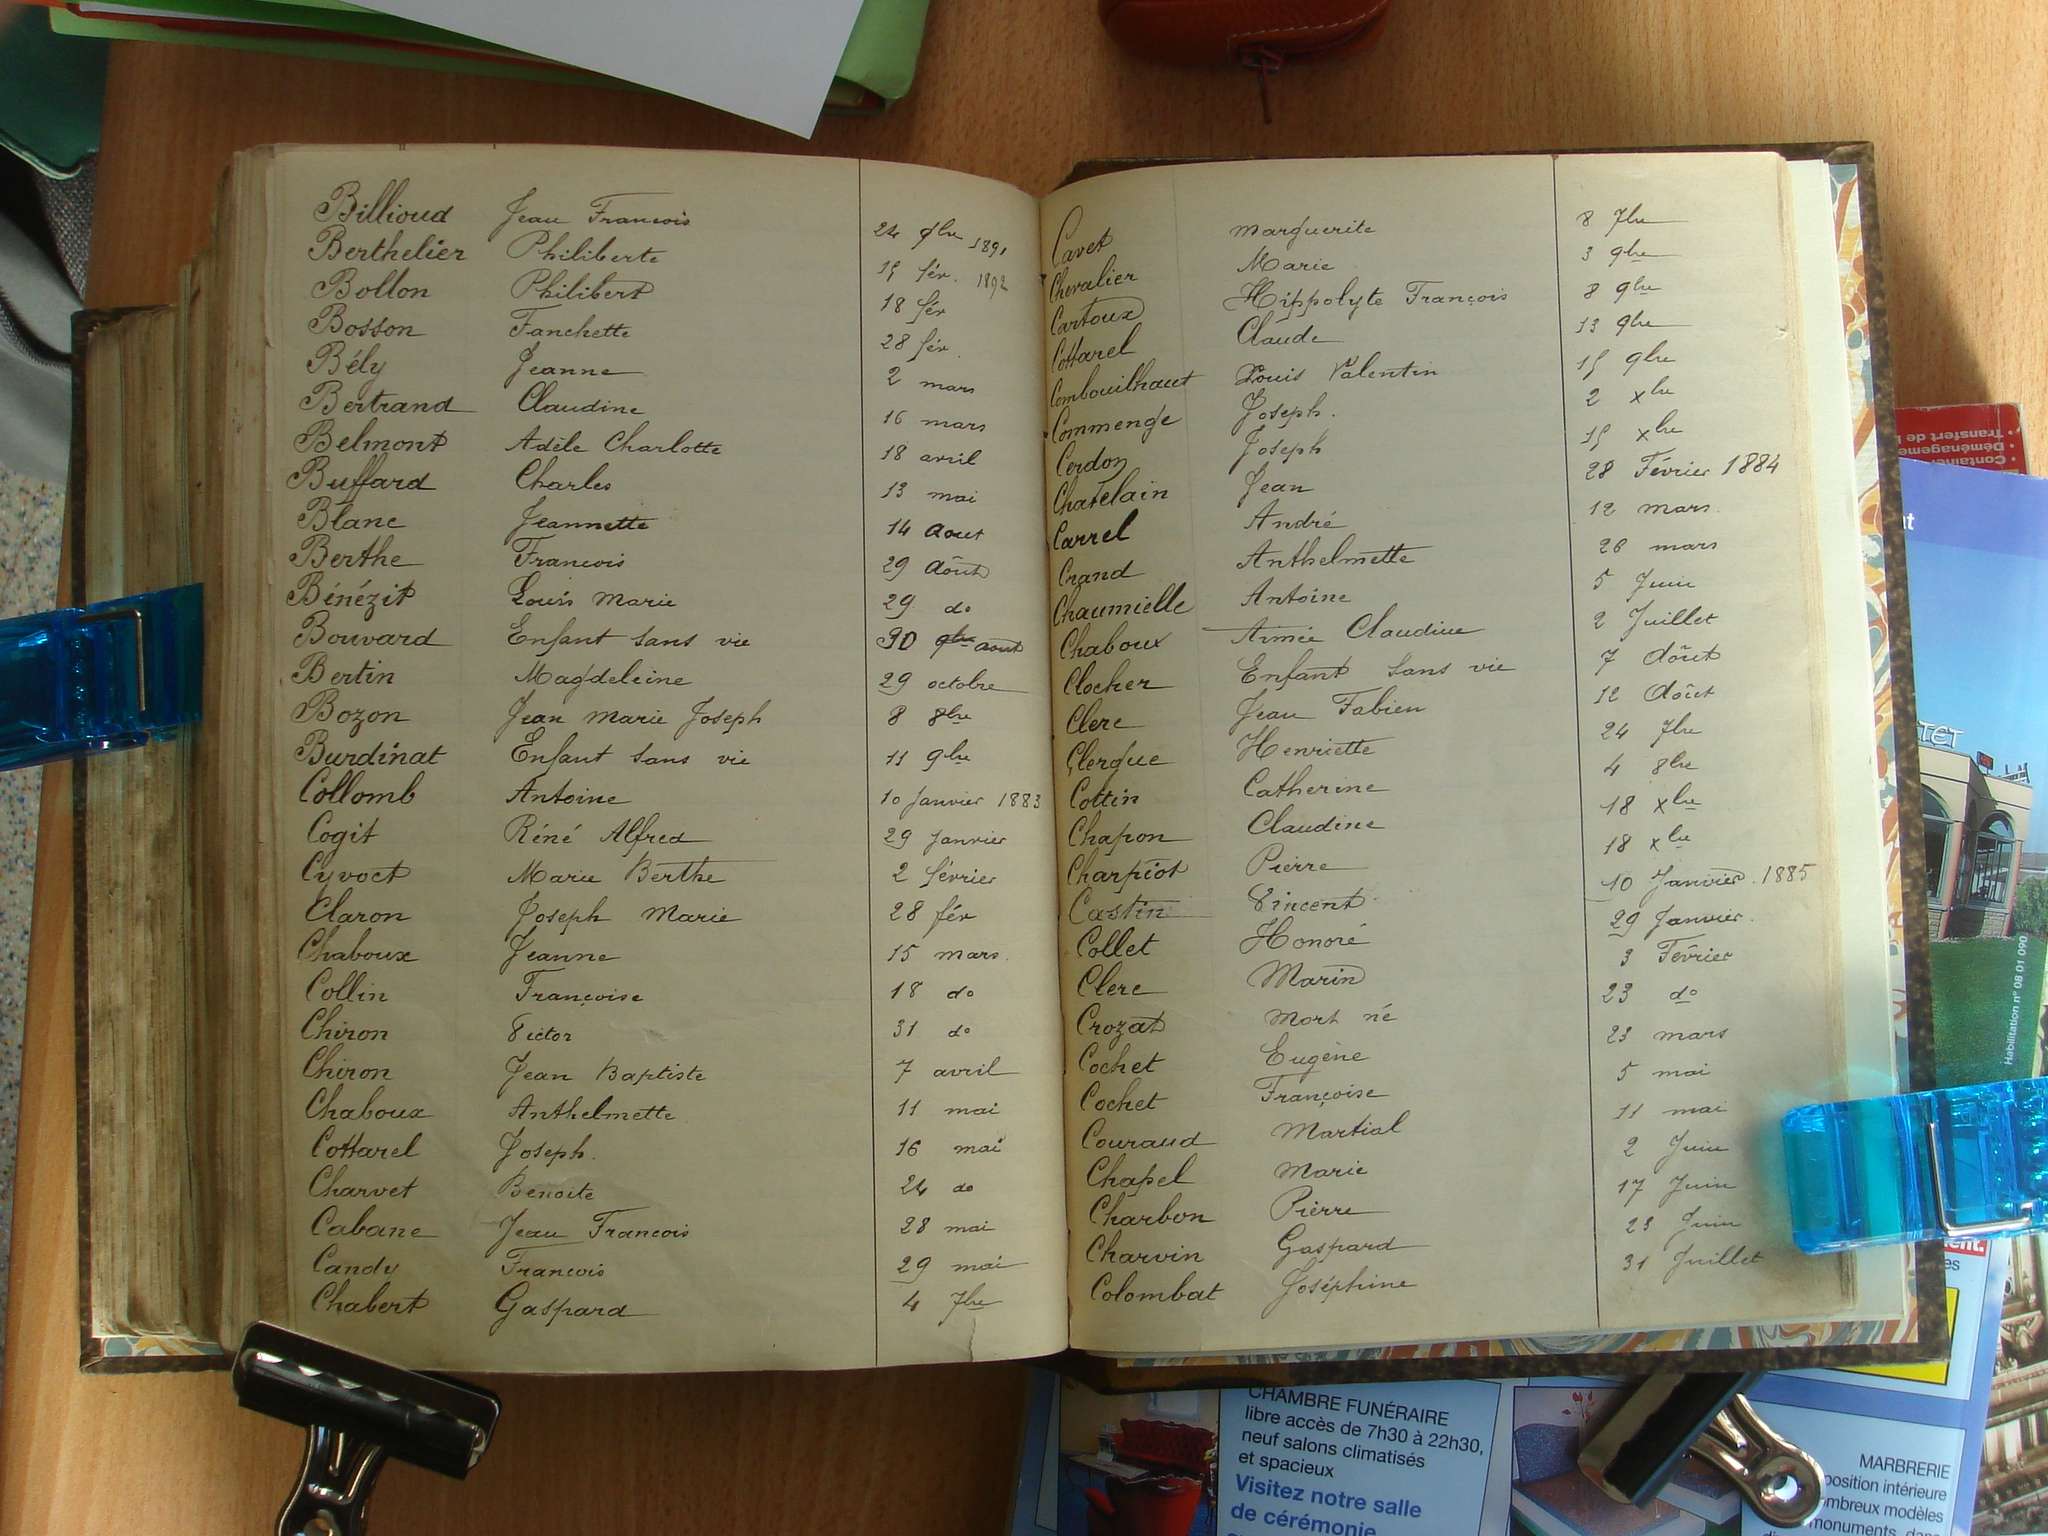 Billioud Jean François 24 9bre 1891
Berthelier Philiberte 15 fév. 1892
Bollon Philibert 18 fév
Bosson Fanchette 28 fév.
Bély Jeanne 2 mars
Bertrand Claudine 16 mars
Belmont Adèle Charlotte 18 avril
Buffard Charles 13 mai
Blanc Jeannette 14 Aout
Berthe François 29 Août
Bénézit Louis Marie 29 do
Bouvard Enfant sans vie 30 9bre aout
Bertin Magdeleine 29 octobre
Bozon Jean Marie Joseph 8 8bre
Burdinat Enfant sans vie 11 9bre
Collomb Antoine 10 Janvier 1883
Cogit Réné Alfred 29 Janvier
Cyvoct Marie Berthe 2 février
Claron Joseph Marie 28 fév
Chaboux Jeanne 15 mars.
Collin Françoise 18 do
Chiron Victor 31 do
Chiron Jean Baptiste 7 avril
Chaboux Anthelmette 11 mai
Cottarel Joseph. 16 mai
Charvet Benoite 24 do
Cabane Jean François 28 mai
Candy François 29 mai
Chabert Gaspard 4 7bre
Cavet Marguerite 8 7bre
Chevalier Marie 3 9bre
Cartoux Hippolyte François 8 9bre
Cottarel Claude 13 9bre
Combouilhaut Louis Valentin 15 9bre
Commenge Joseph. 2 xbre
Cerdon Joseph 15 xbre
Chatelain Jean 28 Février 1884
Carrel André 12 mars
Crand Anthelmette 26 mars
Chaumielle Antoine 5 Juin
Chaboux Aimée Claudine 2 Juillet
Clocher Enfant sans vie 7 Août
Clerc Jean Fabien 12 Août
Clergue Henriette 24 7bre
Cottin Catherine 4 8bre
Chapon Claudine 18 xbre
Charpiot Pierre 18 xbre
Castin Vincent 10 Janvier 1885
Collet Honoré 29 Janvier.
Clerc Marin 3 Février
Crozat Mort né 23 do
Cochet Eugène 23 mars
Cochet Françoise 5 mai
Couraud Martial 11 mai
Chapel Marie 2 Juin
Charbon Pierre 17 Juin
Charvin Gaspard 23 Juin
Colombat Joséphine 31 Juillet
Déménagement
• Transfert de
TET
Habilitation n° 08 01 090
CHAMBRE FUNÉRAIRE
libre accès de 7h30 à 22h30,
neuf salons climatisés
et spacieux
Visitez notre salle
de cérémonie
MARBRERIE
position intérieure
ombreux modèles
monuments, dans